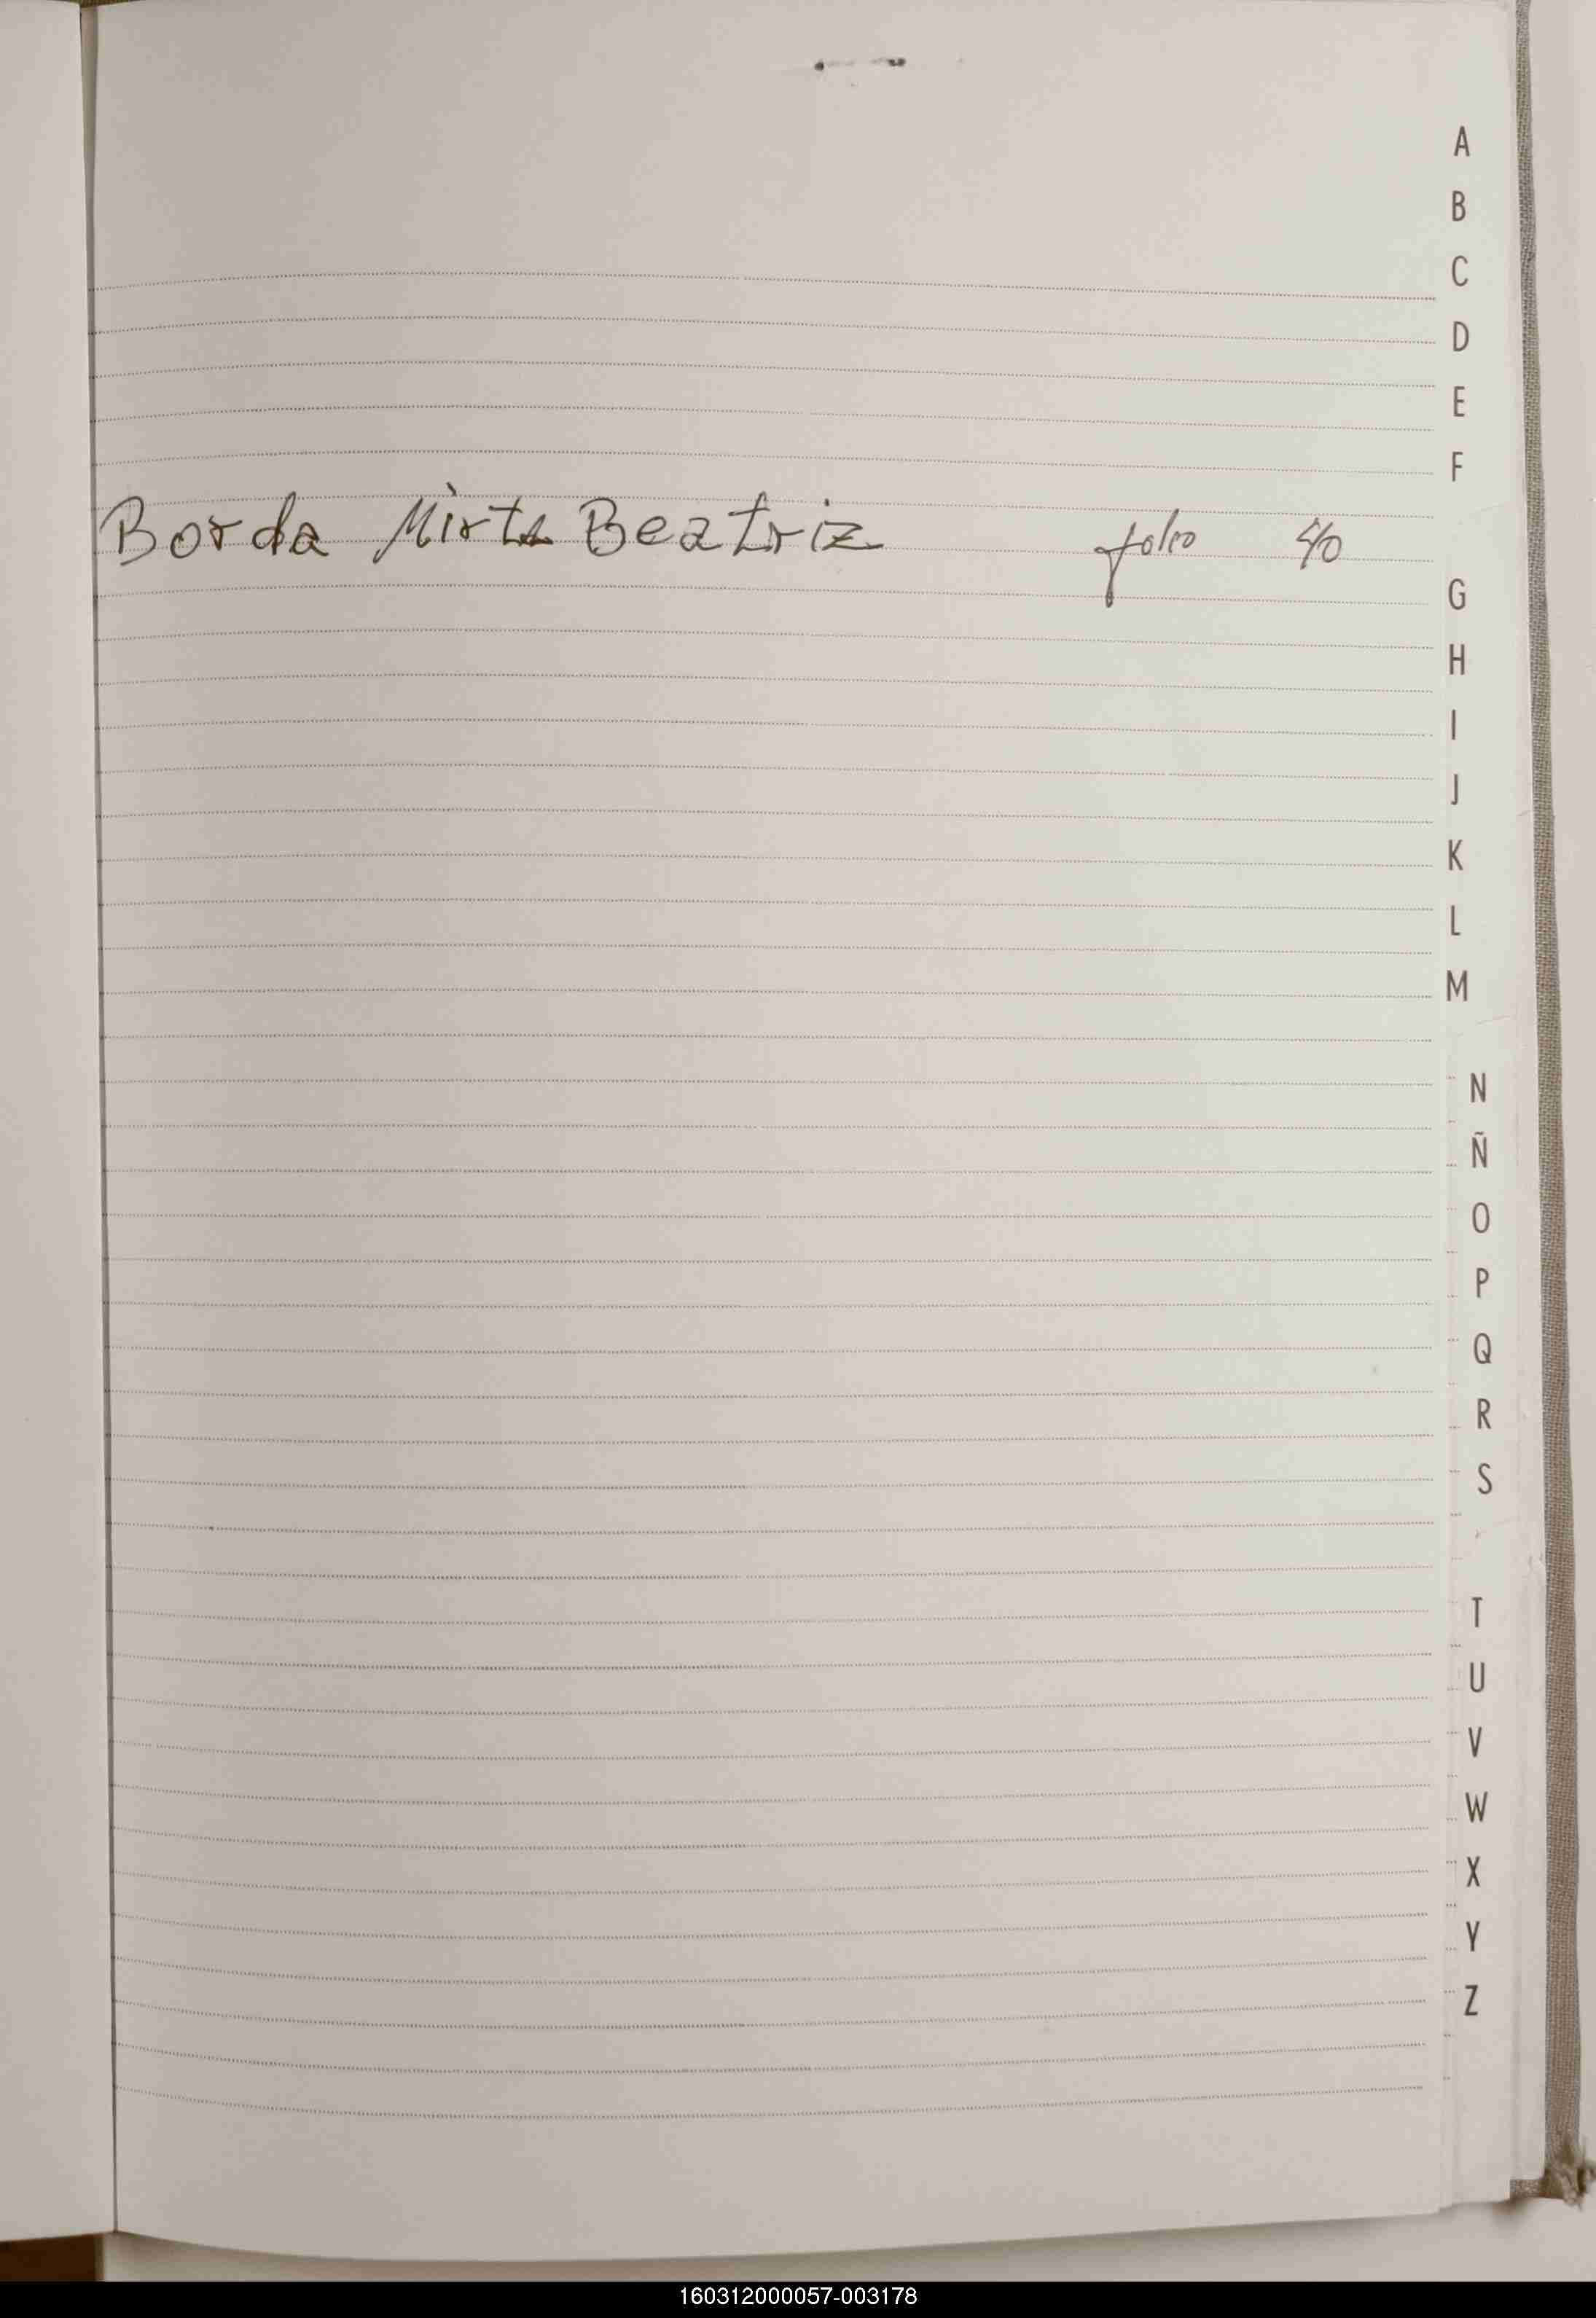 A
B
C
D
E
F
Borda Mirta Beatriz folio 40
G
H
I
J
K
L
M
N
Ñ
O
P
Q
R
S
T
U
V
W
X
Y
Z
160312000057-003178